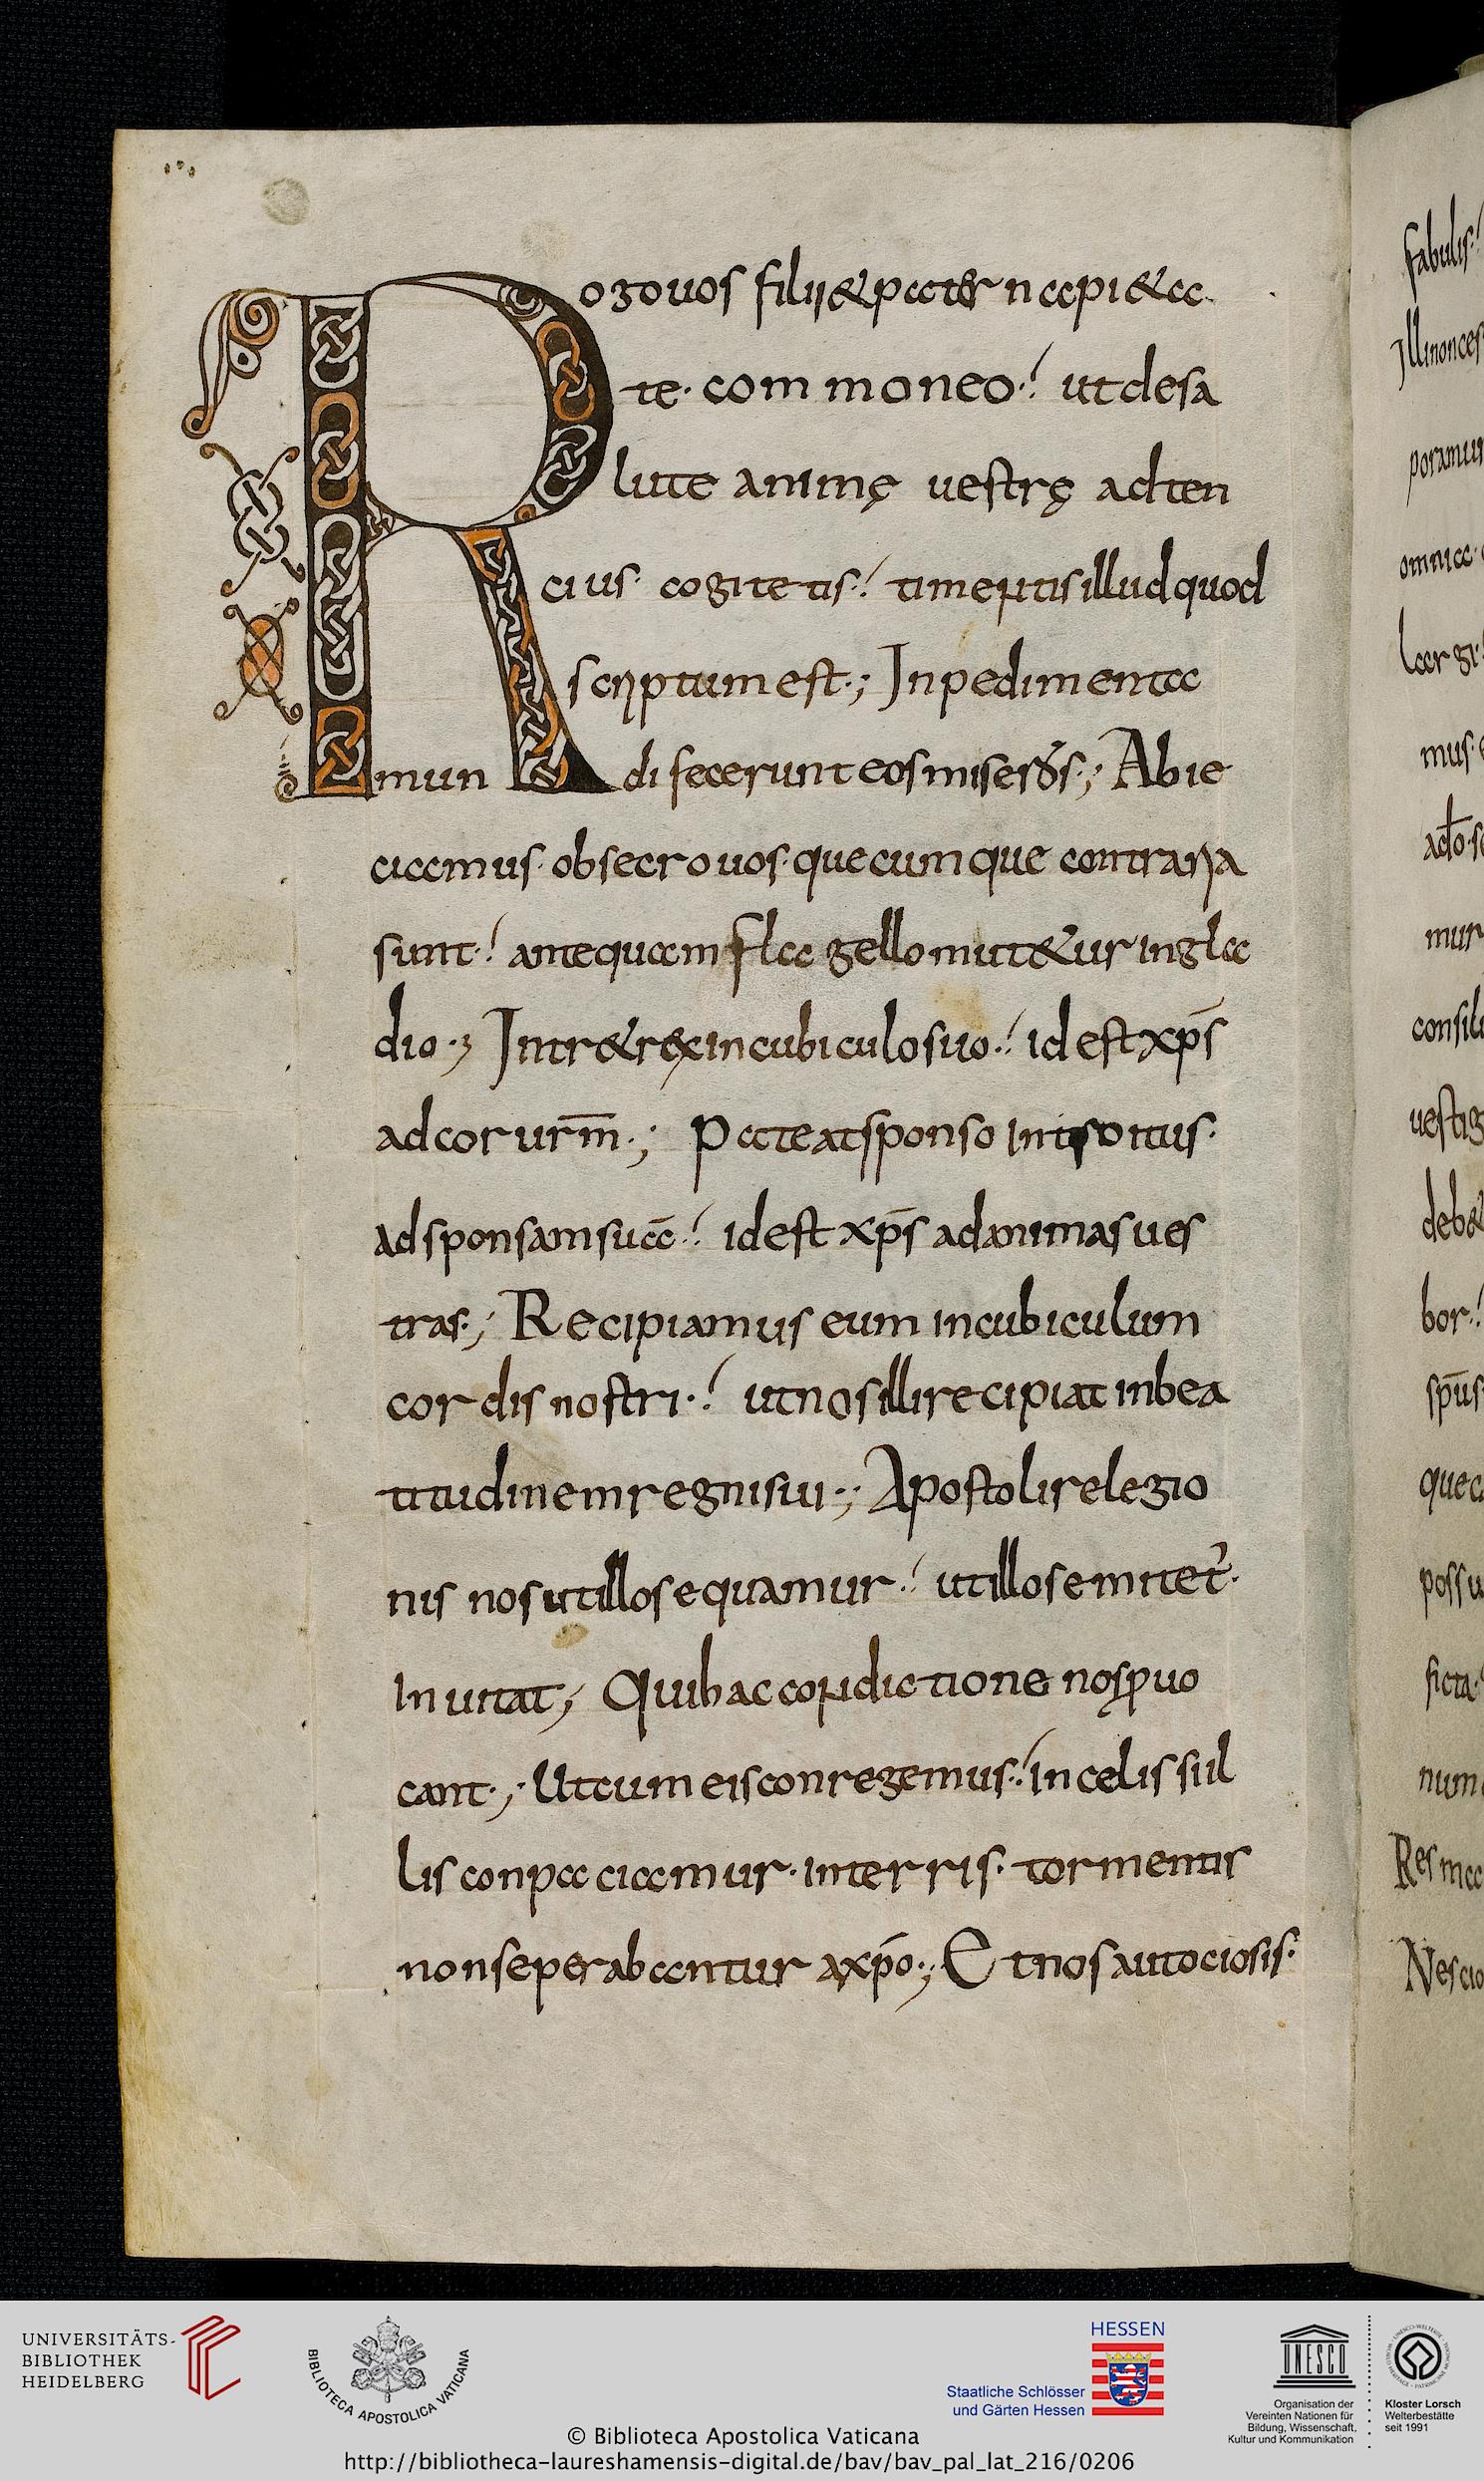 Rogo uos filii & pater na pi&a
te· commoneo· ut de sa
lute animę uestrę ad ten
cius· cogitetis· timeatis illud quod
scriptum est·; Inpedimenta
mundi fecerunt eos miseros·; Abie
ciamus· obsecro uos· quecumque contraria
sunt· antequam flagello mut&ur in gla
dio·; Intr& rex in cubiculo suo· id est xp̄s
ad cor ur̄m·; Pateat sponso introitus·
ad sponsam suā· id est xp̄s ad animas ues
tras·; Recipiamus eum in cubiculum
cordis nostri· ut nos illi recipiat in bea
titudinem regni sui·; Apostoli relegio
nis nos ut illo sequamur· ut illo semiter
Inuitat; Qui hac condictione nos puo
cant·; Ut cum eis conregemus· in celis si il
lis conpaciamur· in terris· tormentis
non seperabantur a xp̄o·; Et nos autociosis·
fabulis·
Illi non ces
poramur
omnia·
largi·
mus·
ad do
mur
consili
uestig
deb&
bor·
sp̄us
quec
possu
ficta·
num
Res mea
Nescio
UNIVERSITÄTS-
BIBLIOTHEK
HEIDELBERG
BIBLIOTECA APOSTOLICA VATICANA
HESSEN
Staatliche Schlösser
und Gärten Hessen
UNESCO
Organisation der
Vereinten Nationen für
Bildung, Wissenschaft,
Kultur und Kommunikation
Kloster Lorsch
Welterbestätte
seit 1991
© Biblioteca Apostolica Vaticana
http://bibliotheca-laureshamensis-digital.de/bav/bav_pal_lat_216/0206